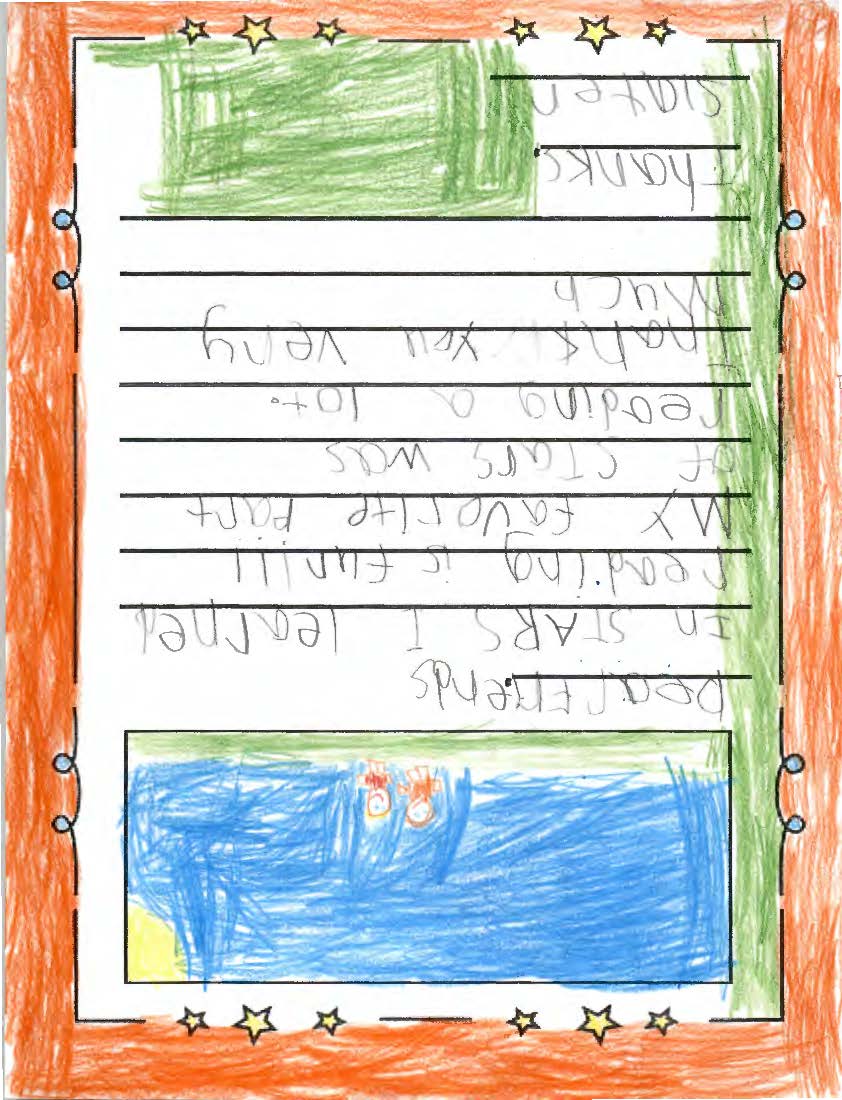 Dear Friends
In STARS I learned
reading is fun!!!
My favorite part
of STARS was
reading a lot.
Thank you very
Much
Thanks
Slater